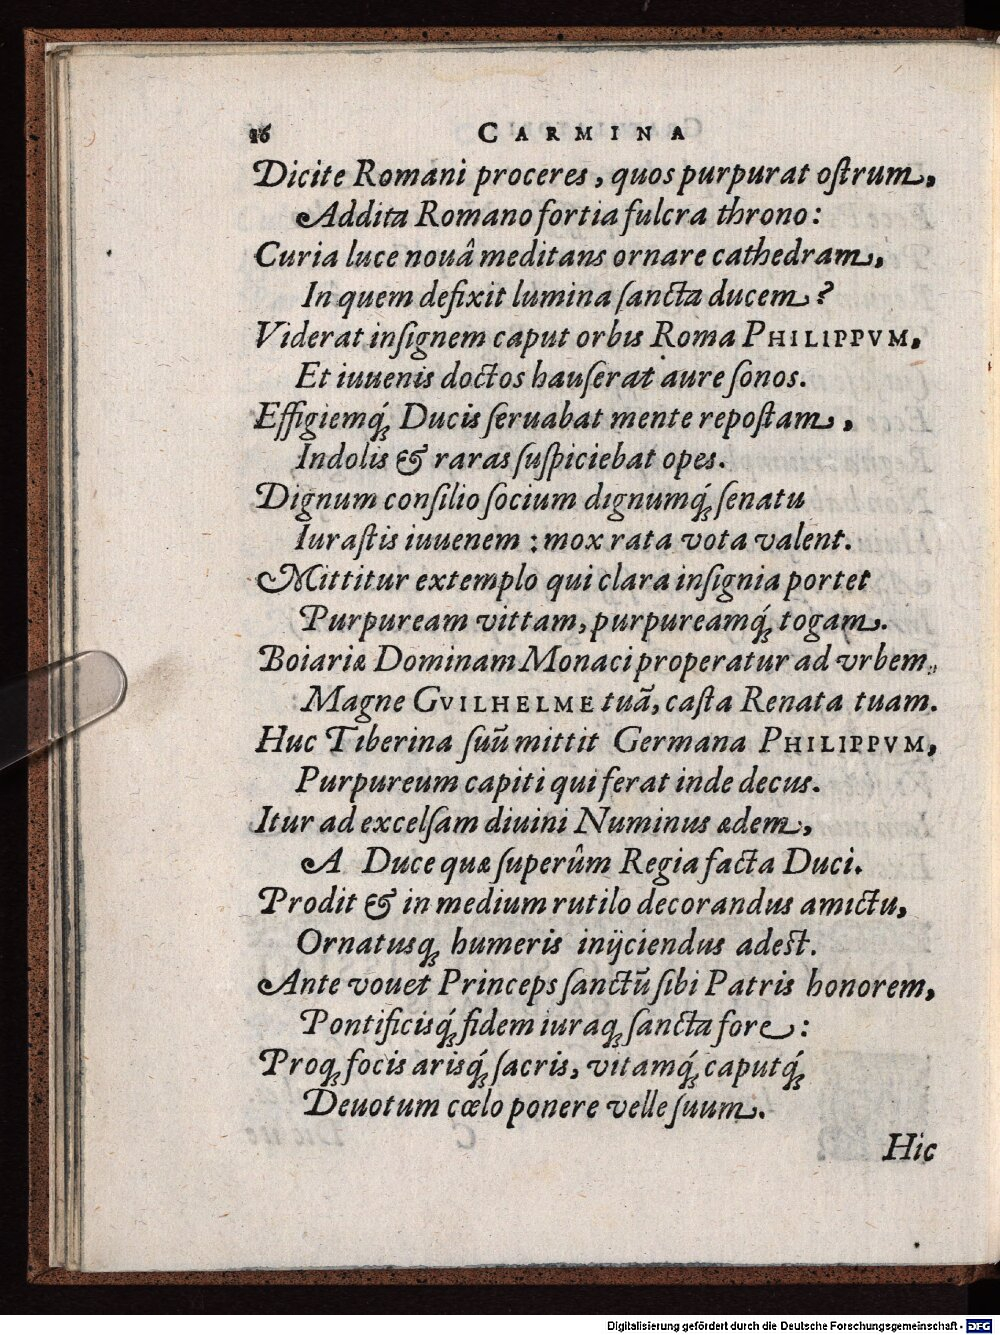 16 CARMINA
Dicite Romani proceres, quos purpurat oſtrum,
Addita Romano fortia fulcra throno:
Curia luce nouâ meditans ornare cathedram,
In quem defixit lumina ſancta ducem?
Viderat inſignem caput orbis Roma PHILIPPVM,
Et iuuenis doctos hauſerat aure ſonos.
Effigiemq́; Ducis ſeruabat mente repoſtam,
Indolis & raras ſuſpiciebat opes.
Dignum conſilio ſocium dignumq́; ſenatu
Iuraſtis iuuenem : mox rata vota valent.
Mittitur extemplo qui clara inſignia portet
Purpuream vittam, purpureamq́; togam.
Boiariæ Dominam Monaci properatur ad vrbem,
Magne GVILHELME tuã, caſta Renata tuam.
Huc Tiberina ſuũ mittit Germana PHILIPPVM,
Purpureum capiti qui ferat inde decus.
Itur ad excelſam diuini Numinus ædem,
A Duce quæ ſuperûm Regia facta Duci.
Prodit & in medium rutilo decorandus amictu,
Ornatusq; humeris inijciendus adest.
Ante vouet Princeps ſanctũ ſibi Patris honorem,
Pontificisq́; fidem iuraq; ſancta fore:
Proq; focis arisq́; ſacris, vitamq́; caputq́;
Deuotum cœlo ponere velle ſuum.
Hic
Digitalisierung gefördert durch die Deutsche Forschungsgemeinschaft - DFG